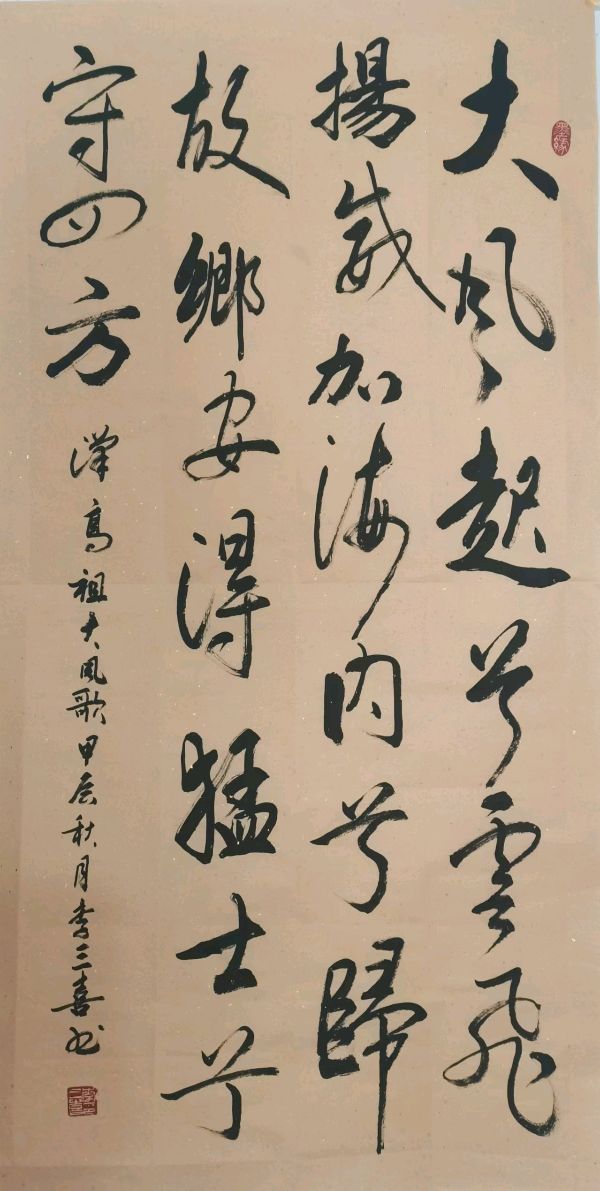 大風起兮雲飛
揚威加海内兮歸
故鄉安得猛士兮
守四方
漢高祖大風歌甲辰秋月李三喜书